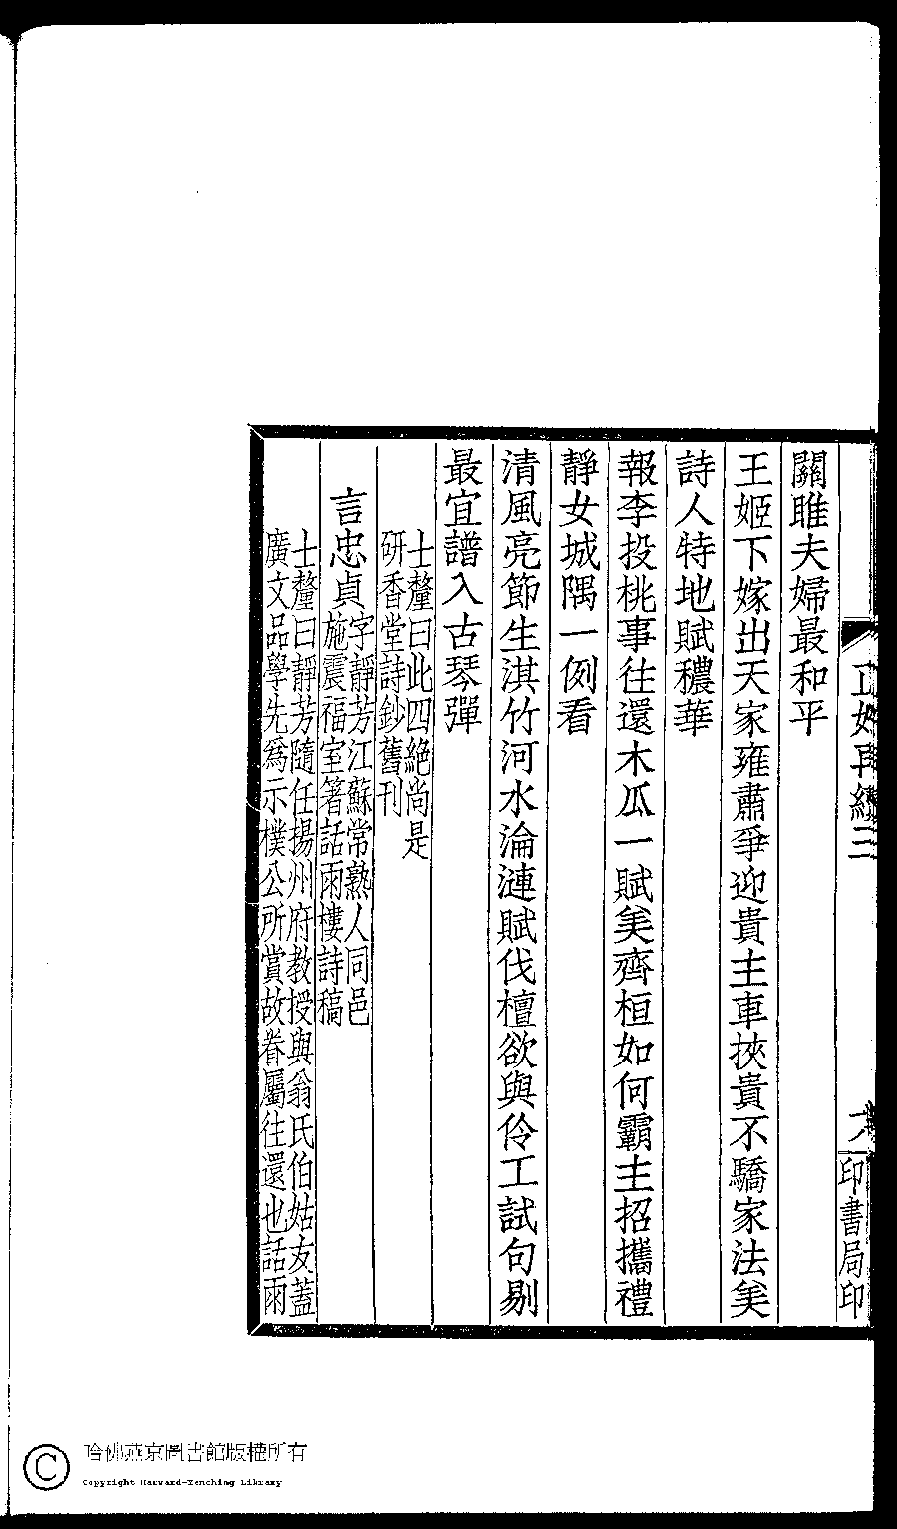 關雎夫婦最和平
王姬下嫁出天家雍肅爭迎貴主車挾貴不驕家法矣
詩人特地賦穠華
報李投桃事往還木瓜一賦美齊桓如何霸主招攜禮
靜女城隅一例看
清風亮節生淇竹河水淪漣賦伐檀欲與伶工試句剔
最宜譜入古琴彈
士釐曰此四絕尚是
研香堂詩鈔舊刊
言忠貞
字靜芳江蘇常熟人同邑
施震福室箸話雨樓詩稿
士釐曰靜芳隨任揚州府教授與翁氏伯姑友蓋
廣文品學先爲示樸公所賞故眷屬往還也話雨
正始再續三
六
印書局印
哈佛燕京圖書館版權所有
Copyright Harvard-Yenching Library